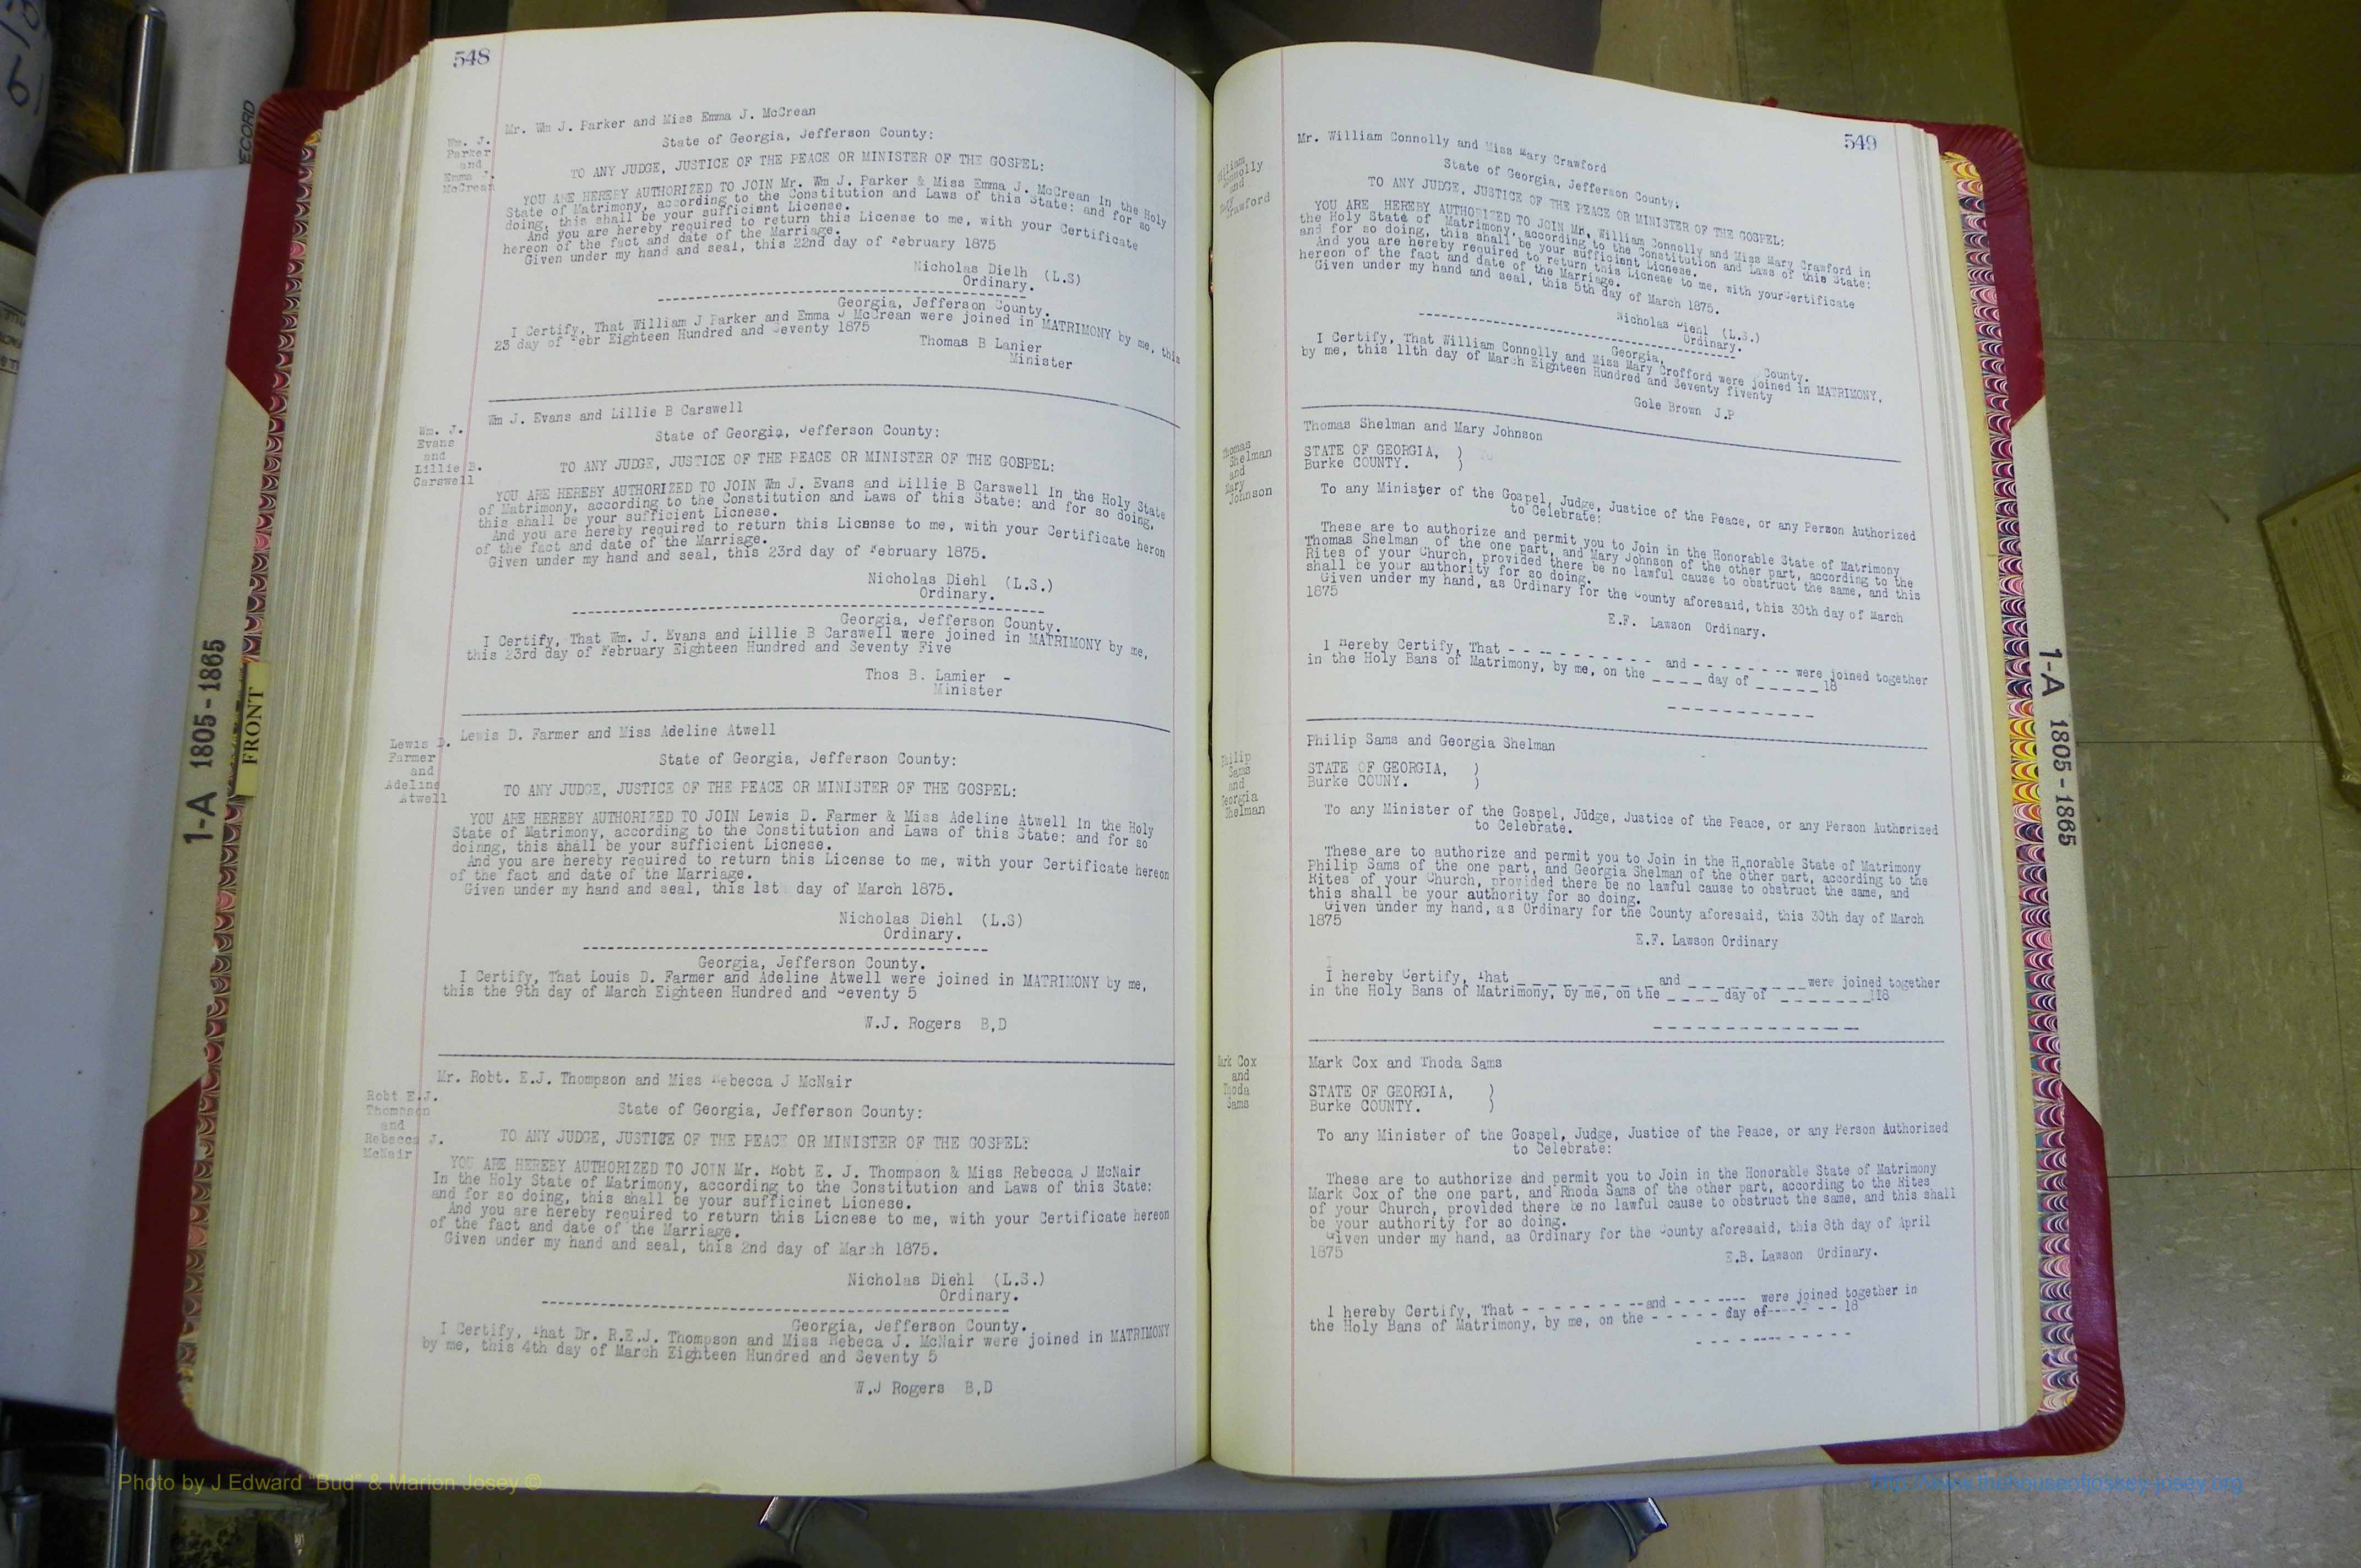 548
Mr. Wm J. Parker and Miss Emma J. McCrean
Wm. J.
Parker
and
Emma J.
McCrean
State of Georgia, Jefferson County:
TO ANY JUDGE, JUSTICE OF THE PEACE OR MINISTER OF THE GOSPEL:
YOU ARE HEREBY AUTHORIZED TO JOIN Mr. Wm J. Parker & Miss Emma J. McCrean In the Holy
State of Matrimony, according to the Constitution and Laws of this State: and for so
doing, this shall be your sufficient License.
And you are hereby required to return this License to me, with your Certificate
hereon of the fact and date of the Marriage.
Given under my hand and seal, this 22nd day of February 1875
Nicholas Dielh (L.S)
Ordinary.
Georgia, Jefferson County.
I Certify, That William J Parker and Emma J McCrean were joined in MATRIMONY by me, this
23 day of Febr Eighteen Hundred and Seventy 1875
Thomas B Lanier
Minister
Wm J. Evans and Lillie B Carswell
Wm. J.
Evans
and
Lillie B.
Carswell
State of Georgia, Jefferson County:
TO ANY JUDGE, JUSTICE OF THE PEACE OR MINISTER OF THE GOSPEL:
YOU ARE HEREBY AUTHORIZED TO JOIN Wm J. Evans and Lillie B Carswell In the Holy State
of Matrimony, according to the Constitution and Laws of this State: and for so doing,
this shall be your sufficient Licnese.
And you are hereby required to return this License to me, with your Certificate heron
of the fact and date of the Marriage.
Given under my hand and seal, this 23rd day of February 1875.
Nicholas Diehl (L.S.)
Ordinary.
Georgia, Jefferson County.
I Certify, That Wm. J. Evans and Lillie B Carswell were joined in MATRIMONY by me,
this 23rd day of February Eighteen Hundred and Seventy Five
Thos B. Lamier -
Minister
Lewis D. Farmer and Miss Adeline Atwell
Lewis D.
Farmer
and
Adeline
Atwell
State of Georgia, Jefferson County:
TO ANY JUDGE, JUSTICE OF THE PEACE OR MINISTER OF THE GOSPEL:
YOU ARE HEREBY AUTHORIZED TO JOIN Lewis D. Farmer & Miss Adeline Atwell In the Holy
State of Matrimony, according to the Constitution and Laws of this State: and for so
doinng, this shall be your sufficient Licnese.
And you are hereby required to return this License to me, with your Certificate hereon
of the fact and date of the Marriage.
Given under my hand and seal, this 1st day of March 1875.
Nicholas Diehl (L.S)
Ordinary.
Georgia, Jefferson County.
I Certify, That Louis D. Farmer and Adeline Atwell were joined in MATRIMONY by me,
this the 9th day of March Eighteen Hundred and Seventy 5
W.J. Rogers B,D
Mr. Robt. E.J. Thompson and Miss Rebecca J McNair
Robt E.J.
Thompson
and
Rebecca J.
McNair
State of Georgia, Jefferson County:
TO ANY JUDGE, JUSTICE OF THE PEACE OR MINISTER OF THE GOSPEL:
YOU ARE HEREBY AUTHORIZED TO JOIN Mr. Robt E. J. Thompson & Miss Rebecca J McNair
In the Holy State of Matrimony, according to the Constitution and Laws of this State:
and for so doing, this shall be your sufficinet Licnese.
And you are hereby required to return this Licnese to me, with your Certificate hereon
of the fact and date of the Marriage.
Given under my hand and seal, this 2nd day of March 1875.
Nicholas Diehl (L.S.)
Ordinary.
Georgia, Jefferson County.
I Certify, That Dr. R.E.J. Thompson and Miss Rebeca J. McNair were joined in MATRIMONY
by me, this 4th day of March Eighteen Hundred and Seventy 5
W.J Rogers B,D
549
Mr. William Connolly and Miss Mary Crawford
William
Connolly
and
Mary
Crawford
State of Georgia, Jefferson County:
TO ANY JUDGE, JUSTICE OF THE PEACE OR MINISTER OF THE GOSPEL:
YOU ARE HEREBY AUTHORIZED TO JOIN Mr. William Connolly and Miss Mary Crawford in
the Holy State of Matrimony, according to the Constitution and Laws of this State:
and for so doing, this shall be your sufficient Licnese.
And you are hereby required to return this Licnese to me, with yourCertificate
hereon of the fact and date of the Marriage.
Given under my hand and seal, this 5th day of March 1875.
Nicholas Diehl (L.S.)
Ordinary.
Georgia, County.
I Certify, That William Connolly and Miss Mary Crofford were joined in MATRIMONY,
by me, this 11th day of March Eighteen Hundred and Seventy fiventy
Gole Brown J.P
Thomas Shelman and Mary Johnson
Thomas
Shelman
and
Mary
Johnson
STATE OF GEORGIA, )
Burke COUNTY. )
To any Minister of the Gospel, Judge, Justice of the Peace, or any Person Authorized
to Celebrate:
These are to authorize and permit you to Join in the Honorable State of Matrimony
Thomas Shelman of the one part, and Mary Johnson of the other part, according to the
Rites of your Church, provided there be no lawful cause to obstruct the same, and this
shall be your authority for so doing.
Given under my hand, as Ordinary for the County aforesaid, this 30th day of March
1875
E.F. Lawson Ordinary.
I Hereby Certify, That - - - - - - - - - - and - - - - - - - -- were joined together
in the Holy Bans of Matrimony, by me, on the _ _ _ _ day of _ _ _ _ _ 18
Philip Sams and Georgia Shelman
Philip
Sams
and
Georgia
Shelman
STATE OF GEORGIA, )
Burke COUNY. )
To any Minister of the Gospel, Judge, Justice of the Peace, or any Person Authorized
to Celebrate.
These are to authorize and permit you to Join in the Honorable State of Matrimony
Philip Sams of the one part, and Georgia Shelman of the other part, according to the
Rites of your Church, provided there be no lawful cause to obstruct the same, and
this shall be your authority for so doing.
Given under my hand, as Ordinary for the County aforesaid, this 30th day of March
1875
E.F. Lawson Ordinary
I hereby Certify, That _ _ _ _ _ _ _ _ and _ _ _ _ _ _ _ were joined together
in the Holy Bans of Matrimony, by me, on the _ _ _ _ day of _ _ _ _ _ _ _118
Mark Cox and Thoda Sams
Mark Cox
and
Thoda
Sams
STATE OF GEORGIA, )
Burke COUNTY. )
To any Minister of the Gospel, Judge, Justice of the Peace, or any Person Authorized
to Celebrate:
These are to authorize and permit you to Join in the Honorable State of Matrimony
Mark Cox of the one part, and Rhoda Sams of the other part, according to the Rites
of your Church, provided there be no lawful cause to obstruct the same, and this shall
be your authority for so doing.
Given under my hand, as Ordinary for the County aforesaid, this 8th day of April
1875
E.B. Lawson Ordinary.
I hereby Certify, That - - - - - - - --and - - - ---- were joined together in
the Holy Bans of Matrimony, by me, on the - - - - - day of----- - - 18
1-A 1805-1865
FRONT
1-A 1805-1865
Photo by J Edward "Bud" & Marion Josey ©
http://www.thehouseofjossey-josey.org